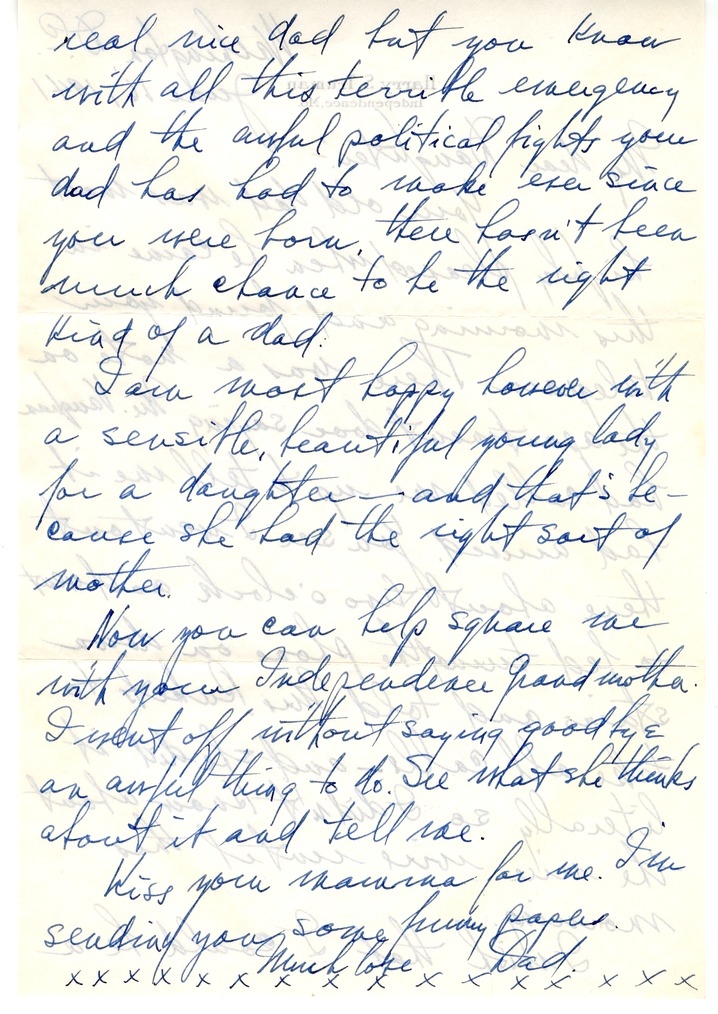 real nice dad but you know
with all this terrible emergency
and the awful political fights your
dad has had to make ever since
you were born, there hasn't been
much chance to be the right
kind of a dad.
I am most happy however with
a sensible, beautiful young lady
for a daughter—and that's be-
cause she had the right sort of
mother.
Now you can help square me
with your Independence Grandmother.
I went off without saying goodbye
an awful thing to do. See what she thinks
about it and tell me.
Kiss your mamma for me. I'm
sending you some funny papers.
Much love Dad.
x x x x x x x x x x x x x x x